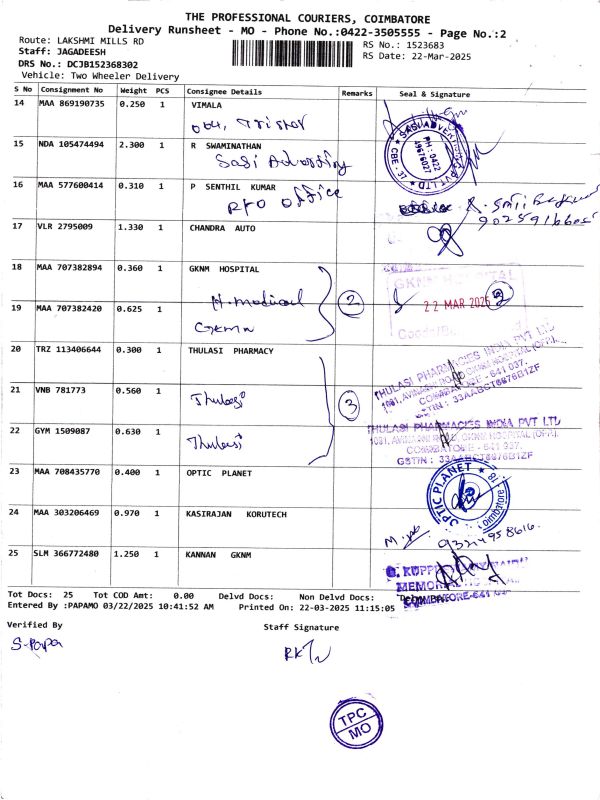 THE PROFESSIONAL COURIERS, COIMBATORE
Delivery Runsheet - MO - Phone No.:0422-3505555 - Page No.:2
Route: LAKSHMI MILLS RD
RS No.: 1523683
Staff: JAGADEESH
RS Date: 22-Mar-2025
DRS No.: DCJB152368302
Vehicle: Two Wheeler Delivery
S No Consignment No Weight PCS Consignee Details Remarks Seal & Signature
14 MAA 869190735 0.250 1 VIMALA
15 NDA 105474494 2.300 1 R SWAMINATHAN
Sasi Advertising
SASI ADVERTISING PVT LTD
CBE - 37
PH : 0422
4976027
16 MAA 577600414 0.310 1 P SENTHIL KUMAR
RTO office
17 VLR 2795009 1.330 1 CHANDRA AUTO
18 MAA 707382894 0.360 1 GKNM HOSPITAL
H. medical
2
GKNM HOSPITAL
22 MAR 2025
19 MAA 707382420 0.625 1
20 TRZ 113406644 0.300 1 THULASI PHARMACY
THULASI PHARMACIES INDIA PVT LTD
21 VNB 781773 0.560 1
Thulasi
3
22 GYM 1509087 0.630 1
Thulasi
THULASI PHARMACIES INDIA PVT LTD
23 MAA 708435770 0.400 1 OPTIC PLANET
OPTIC PLANET
Coimbatore - 18
24 MAA 303206469 0.970 1 KASIRAJAN KORUTECH
25 SLM 366772480 1.250 1 KANNAN GKNM
Tot Docs: 25 Tot COD Amt: 0.00 Delvd Docs: Non Delvd Docs:
Entered By :PAPAMO 03/22/2025 10:41:52 AM Printed On: 22-03-2025 11:15:05
COIMBATORE-641
Verified By
Staff Signature
S-Papa
TPC
MO